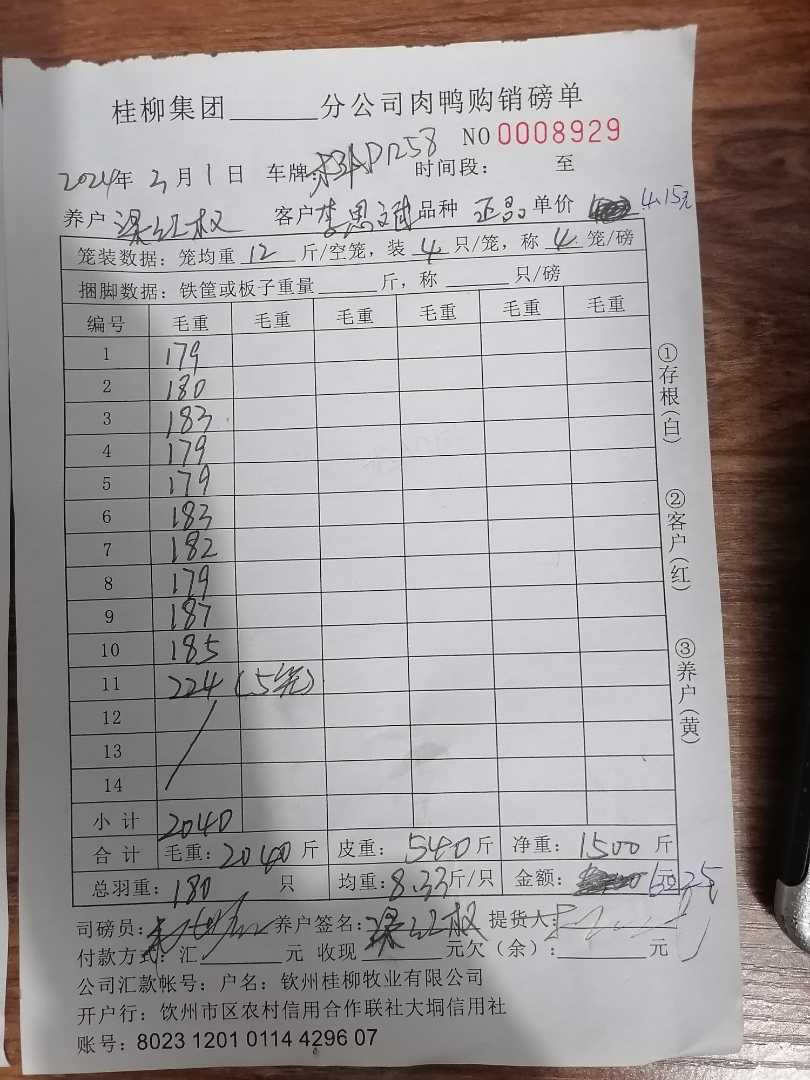 桂柳集团______分公司肉鸭购销磅单
NO 0008929
2024年 2月 1日 车牌: P1258 时间段: 至
养户 梁红权 客户 李思斌 品种 正品 单价 4.15元
笼装数据: 笼均重 12 斤/空笼, 装 4 只/笼, 称 4 笼/磅
捆脚数据: 铁筐或板子重量______斤, 称______只/磅
编号 毛重 毛重 毛重 毛重 毛重 毛重
1 179
2 180
3 183
4 179
5 179
6 183
7 182
8 179
9 187
10 185
11 224 (5笼)
12
13
14
小计 2040
合计 毛重: 2040 斤 皮重: 540 斤 净重: 1500 斤
总羽重: 180 只 均重: 8.33 斤/只 金额: 元
司磅员: 养户签名: 梁红权 提货人:
付款方式: 汇______元 收现______元欠(余):______元
公司汇款帐号: 户名: 钦州桂柳牧业有限公司
开户行: 钦州市区农村信用合作联社大垌信用社
账号: 8023 1201 0114 4296 07
①存根(白)
②客户(红)
③养户(黄)